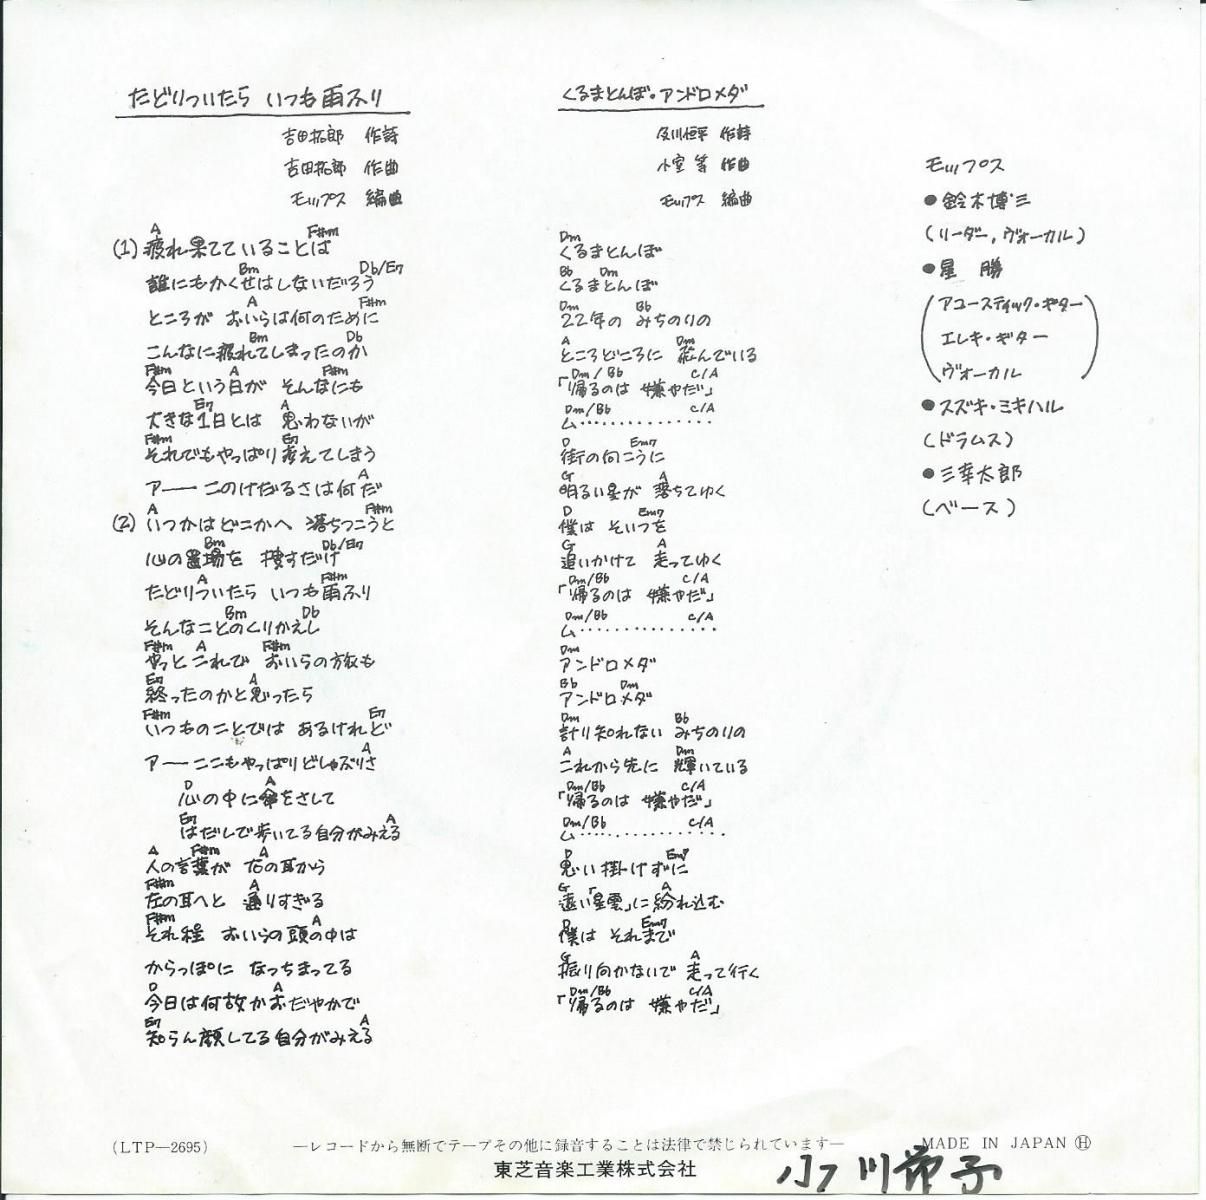 たどりついたら いつも雨ふり
吉田拓郎 作詩
吉田拓郎 作曲
モップス 編曲
A F#m
(1) 疲れ果てていることは
Bm Db/E7
誰にもかくせはしないだろう
A F#m
ところが おいらは何のために
Bm Db
こんなに疲れてしまったのか
F#m A F#m
今日という日が そんなにも
E7 A
大きな1日とは 思わないが
F#m E7
それでもやっぱり考えてしまう
A
アー― このけだるさは何だ
A F#m
(2) いつかはどこかへ 落ちつこうと
Bm Db/E7
心の置場を 捜すだけ
A F#m
たどりついたら いつも雨ふり
Bm Db
そんなことのくりかえし
F#m A F#m
やっと これで おいらの旅も
E7 A
終ったのかと思ったら
F#m E7
いつものことでは あるけれど
A
アー― ここもやっぱりどしゃぶりさ
D A
心の中に傘をさして
E7 A
はだしで歩いてる自分がみえる
A F#m A
人の言葉が 右の耳から
F#m A
左の耳へと 通りすぎる
F#m A
それ程 おいらの頭の中は
からっぽに なっちまってる
D A
今日は何故かおだやかで
E7 A
知らん顔してる自分がみえる
くるまとんぼ・アンドロメダ
及川恒平 作詩
小室 等 作曲
モップス 編曲
Dm
くるまとんぼ
Bb Dm
くるまとんぼ
Dm Bb
22年の みちのりの
A Dm
ところどころに 飛んでいる
Dm/Bb C/A
「帰るのは 嫌やだ」
Dm/Bb C/A
ム・・・・・・・・・・・・・
D Em7
街の向こうに
G A
明るい星が 落ちてゆく
D Em7
僕は そいつを
G A
追いかけて 走ってゆく
Dm/Bb C/A
「帰るのは 嫌やだ」
Dm/Bb C/A
ム・・・・・・・・・・・・・
Dm
アンドロメダ
Bb Dm
アンドロメダ
Dm Bb
計り知れない みちのりの
A Dm
これから先に 輝いている
Dm/Bb C/A
「帰るのは 嫌やだ」
Dm/Bb C/A
ム・・・・・・・・・・・・・
D Em7
思い掛けずに
G A
遠い「星雲」に紛れ込む
D Em7
僕は それまで
G A
振り向かないで 走って行く
Dm/Bb C/A
「帰るのは 嫌やだ」
モップス
●鈴木博三
(リーダー, ヴォーカル)
●星 勝
(アコースティック・ギター
エレキ・ギター
ヴォーカル)
●スズキ・ミキハル
(ドラムス)
●三幸太郎
(ベース)
(LTP―2695)
―レコードから無断でテープその他に録音することは法律で禁じられています―
MADE IN JAPAN Ⓗ
東芝音楽工業株式会社
小川節子